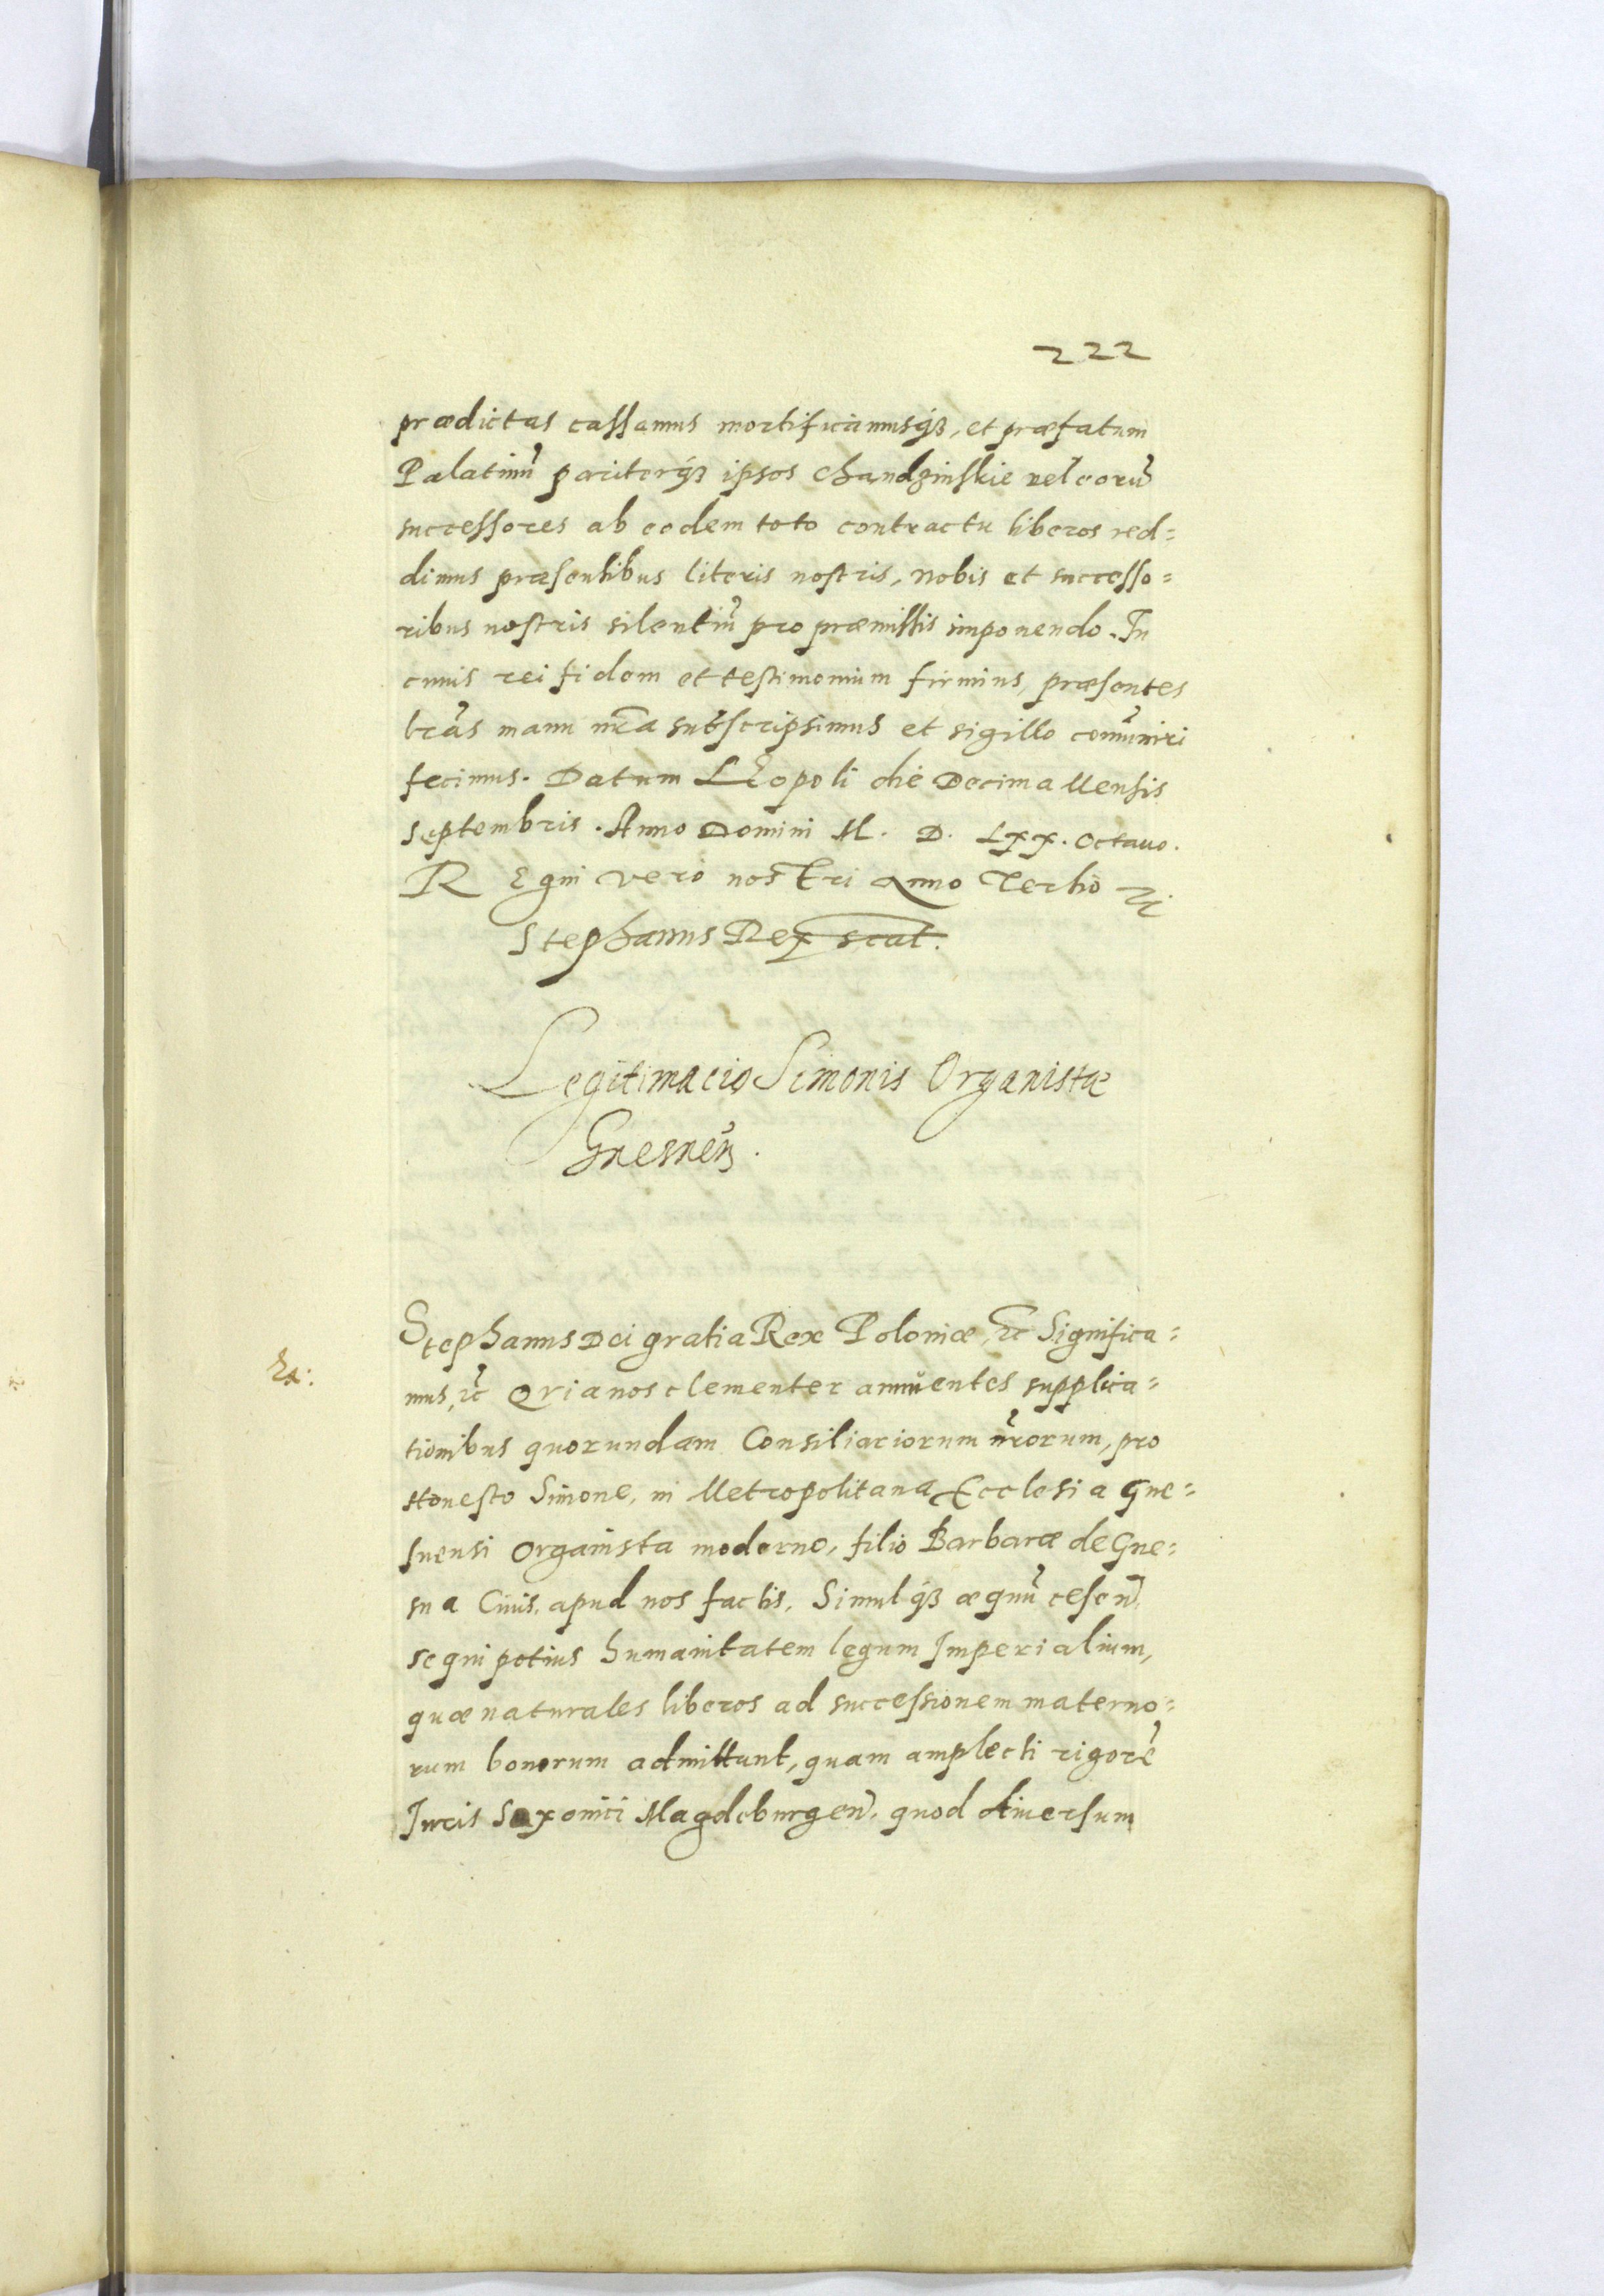 222
prædictas cassamus mortificamusqꝫ, et præfatum
Palatinũ pariterqꝫ ipsos Chandzinskie vel eorũ
successores ab eodem toto contractu liberos red=
dimus præsentibus literis nostris, nobis et successo=
ribus nostris silentiũ pro præmissis imponendo. In
cuius rei fidem et testimonium firmius, præsentes
lrãs manu nr̃a subscripsimus et sigillo com̃uniri
fecimus. Datum LEopoli die Decima Mensis
Septembris. Anno Domini M. D. Lxx. Octauo.
R Egni vero nostri Anno Tertio
Stephanus Rex scat.
Legitimacio Simonis Organistæ
Gnesneñ.
Stephanus Dei gratia Rex Poloniæ, ꝛc Significa=
Ex:
mus, ꝛc Qria nos clementer annuentes supplica=
tionibus quorundam Consiliariorum nr̃orum, pro
Honesto Simone, in Metropolitana Ecclesia Gne=
snensi Organista moderno, filio Barbaræ de Gne=
sna Ciuis, apud nos factis, Simulqꝫ æquũ ceseñ.
sequi potius humanitatem legum Imperialium,
quæ naturales liberos ad successionem materno=
rum bonorum admittunt, quam amplecti rigorẽ
Juris Saxonici Magdeburgeñ. quod diuersum